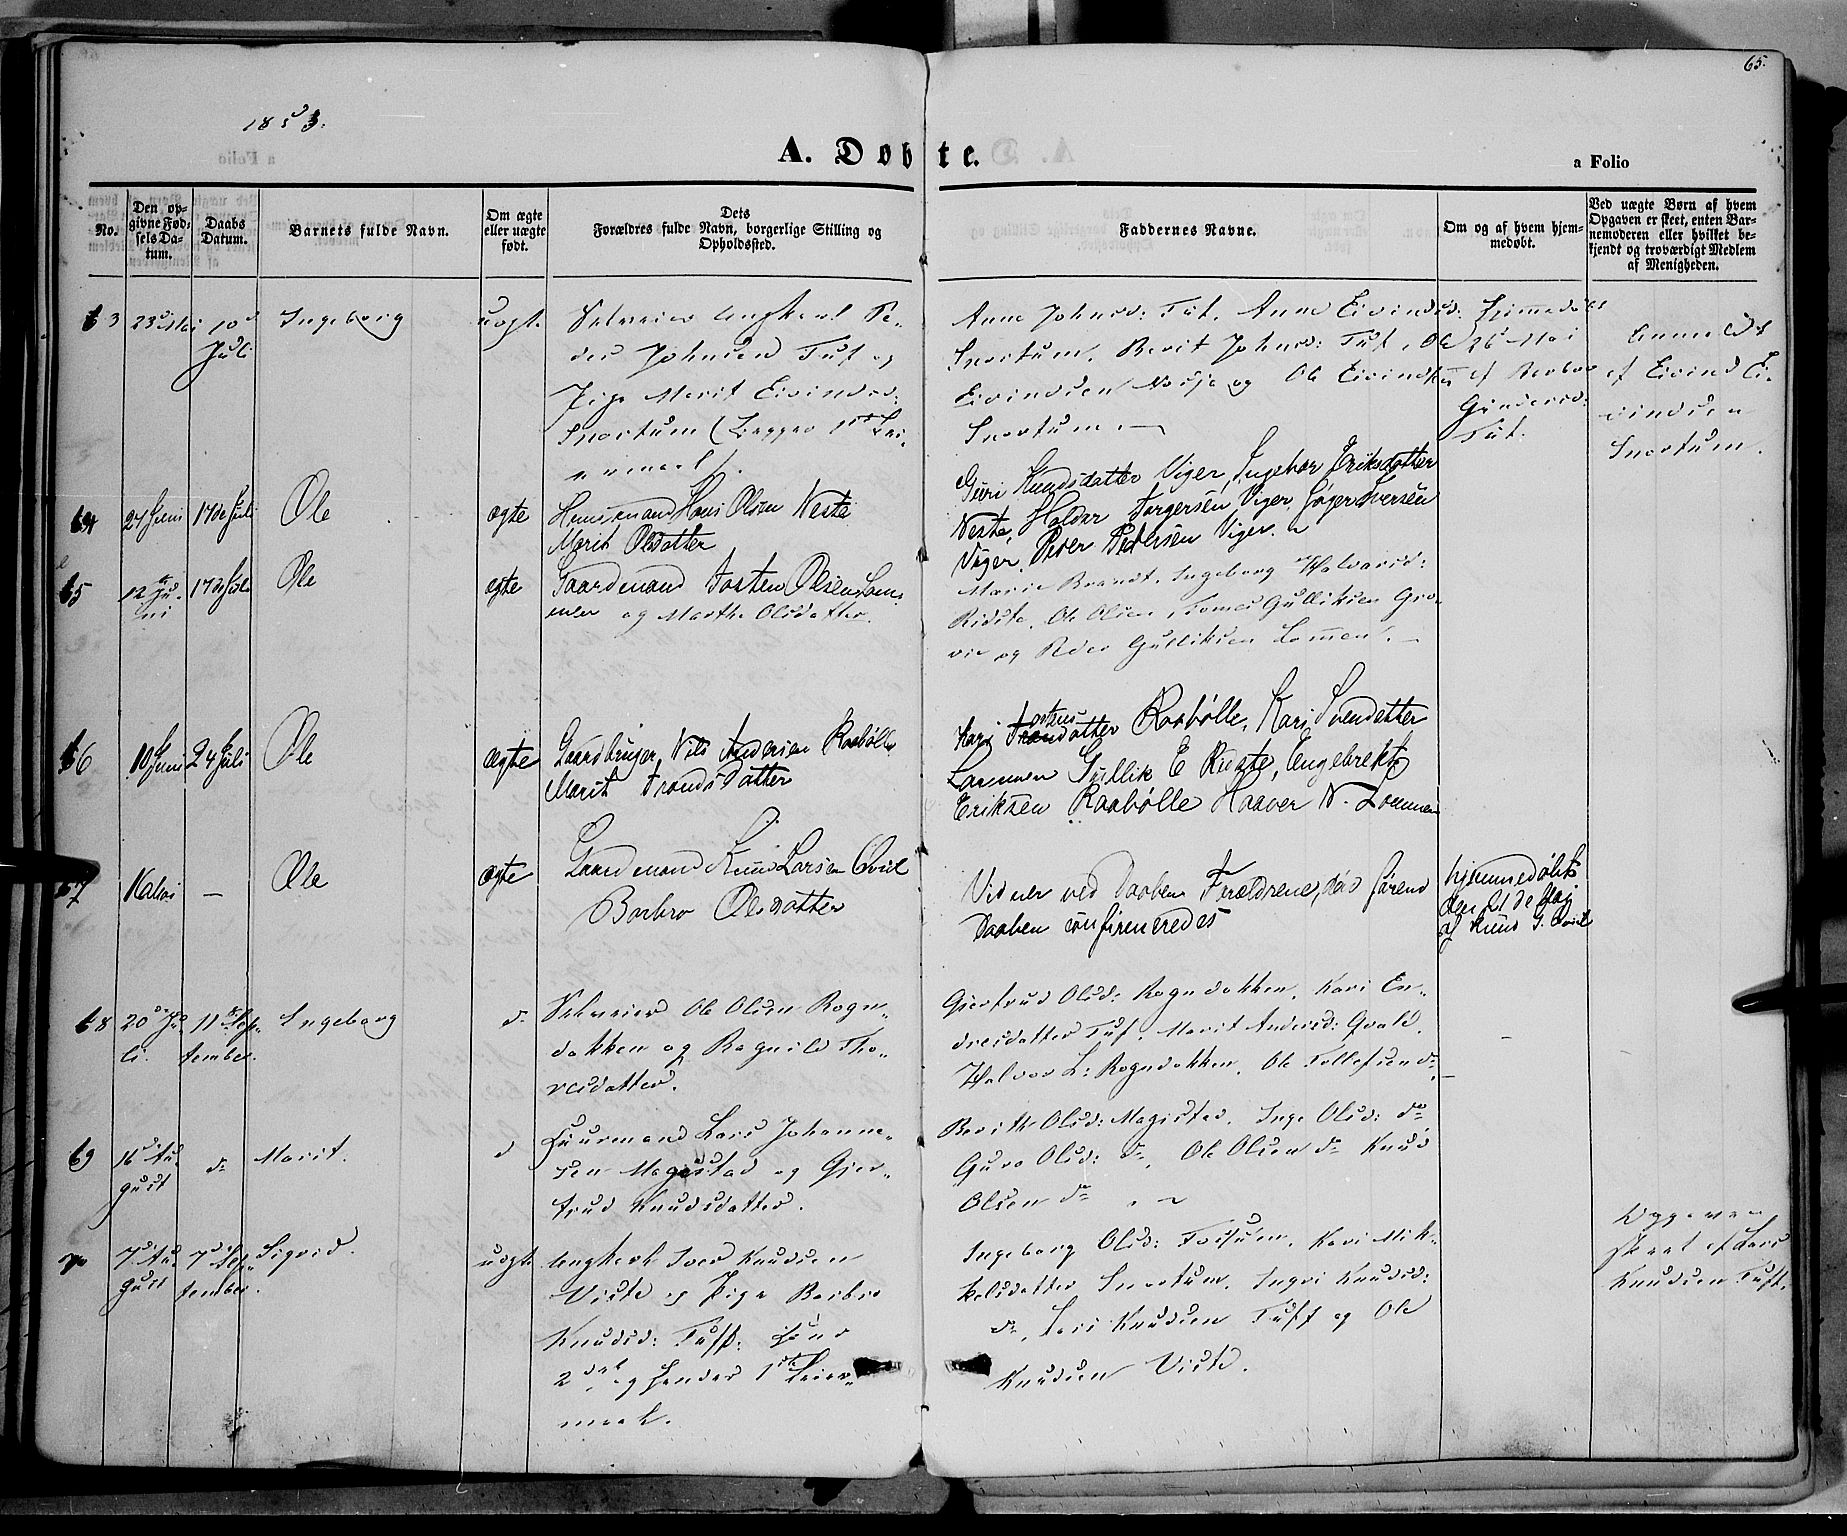 65.
1853.
A. Døbte.
a Folio
No.
Den op-
givne Fød-
sels Da-
tum.
Daabs
Datum.
Barnets fulde Navn.
Om ægte
eller uægte
født.
Dets
Forældres fulde Navn, borgerlige Stilling og
Opholdssted.
Faddernes Navne.
Om og af hvem hjem-
medøbt.
Ved uægte Børn af hvem
Opgaven er skeet, enten Bar-
nemoderen eller hvilket be-
kjendt og troværdigt Medlem
af Menigheden.
63
23d Mai
10d
Juli
Ingeborg
uægte
Selveier Ungkarl Pe-
der Johnsen Tuf og
Pige Marit Eivindsd:
Snortum (Begges 1ste Lei-
ermaal).
Anne Johnsd: Tuf. Anne Eivindsd:
Snortum. Berit Johnsd: Tuf, Ole
Eivindsen og Ole Eivindsen
Snortum.
Hjemmedøbt
26d Mai
af Barbro
Gundersd:
Tuf.
Anmeldt
af Eivind Ei-
vindsen
Snortum.
64
24 Juni
17de Juli
Ole
ægte
Huusmand Hans Olsen Neste
Marit Olsdatter
Guri Knudsdatter Viger, Ingebor Eriksdatter
Neste, Haldor Torgersen Viger, Iversen
Viger, Peder Pedersen Viger.
65
12te Ju-
ni
17de Juli
Ole
ægte
Gaardmand Tosten Olsen Lom-
men og Marthe Olsdatter.
Marie Brandt. Ingeborg Halvorsd:
Ridste. Ole Olsen, Tomes Gulliksen Gro-
vie og Peder Gulliksen Lommen.
66
10 Juni
24 Juli
Ole
ægte
Gaardbruger Nils Andersen Raabølle
Marit Trondsdatter
Kari Tostensdatter Raabølle, Kari Svendatter
Lommen Gullik E Ruste, Engebrekt
Eriksen Raabølle Haaver N. Lommen
67
Mai
—
Ole
ægte
Gaardmand Knud Larsen Qvid
Barbro Olsdatter
Vidner ved Daaben Forældrene, der
Daaben confirmeredes
hjemmedøbt
den 21de Maj
af Knud G. Qvid
68
20de Ju-
li.
11te Sep-
tember.
Ingeborg
do
Selveier Ole Olsen Rogn-
dokken og Ragnild Tho-
resdatter.
Gjertrud Olsd: Rogndokken. Kari En-
dresdatter Tuf. Marit Andersd: Qvale.
Halvor L: Rogndokken. Ole Tollefsen do
69
16d Au-
gust
do
Marit.
do
Huusmand Lars Johanne-
sen Magistad og Gjer-
trud Knudsdatter.
Berith Olsd: Magistad. Inge Olsd: do
Guro Olsd: do, Ole Olsen do Knud
Olsen do
70
7d Au-
gust
7d Sep-
tember.
Sigrid.
uægte
Ungkarl Iver Knudsen
Viste og Pige Barbro
Knudsd: Tuff: hans
2det og hendes 1ste Leier-
maal.
Ingeborg Olsd: Fossum. Kari Mik-
kelsdatter Snortum. Ingri Knudsd:
do, Lars Knudsen Tuff og Ole
Knudsen Viste.
Opgaven
skeet af Lars
Knudsen Tuff.